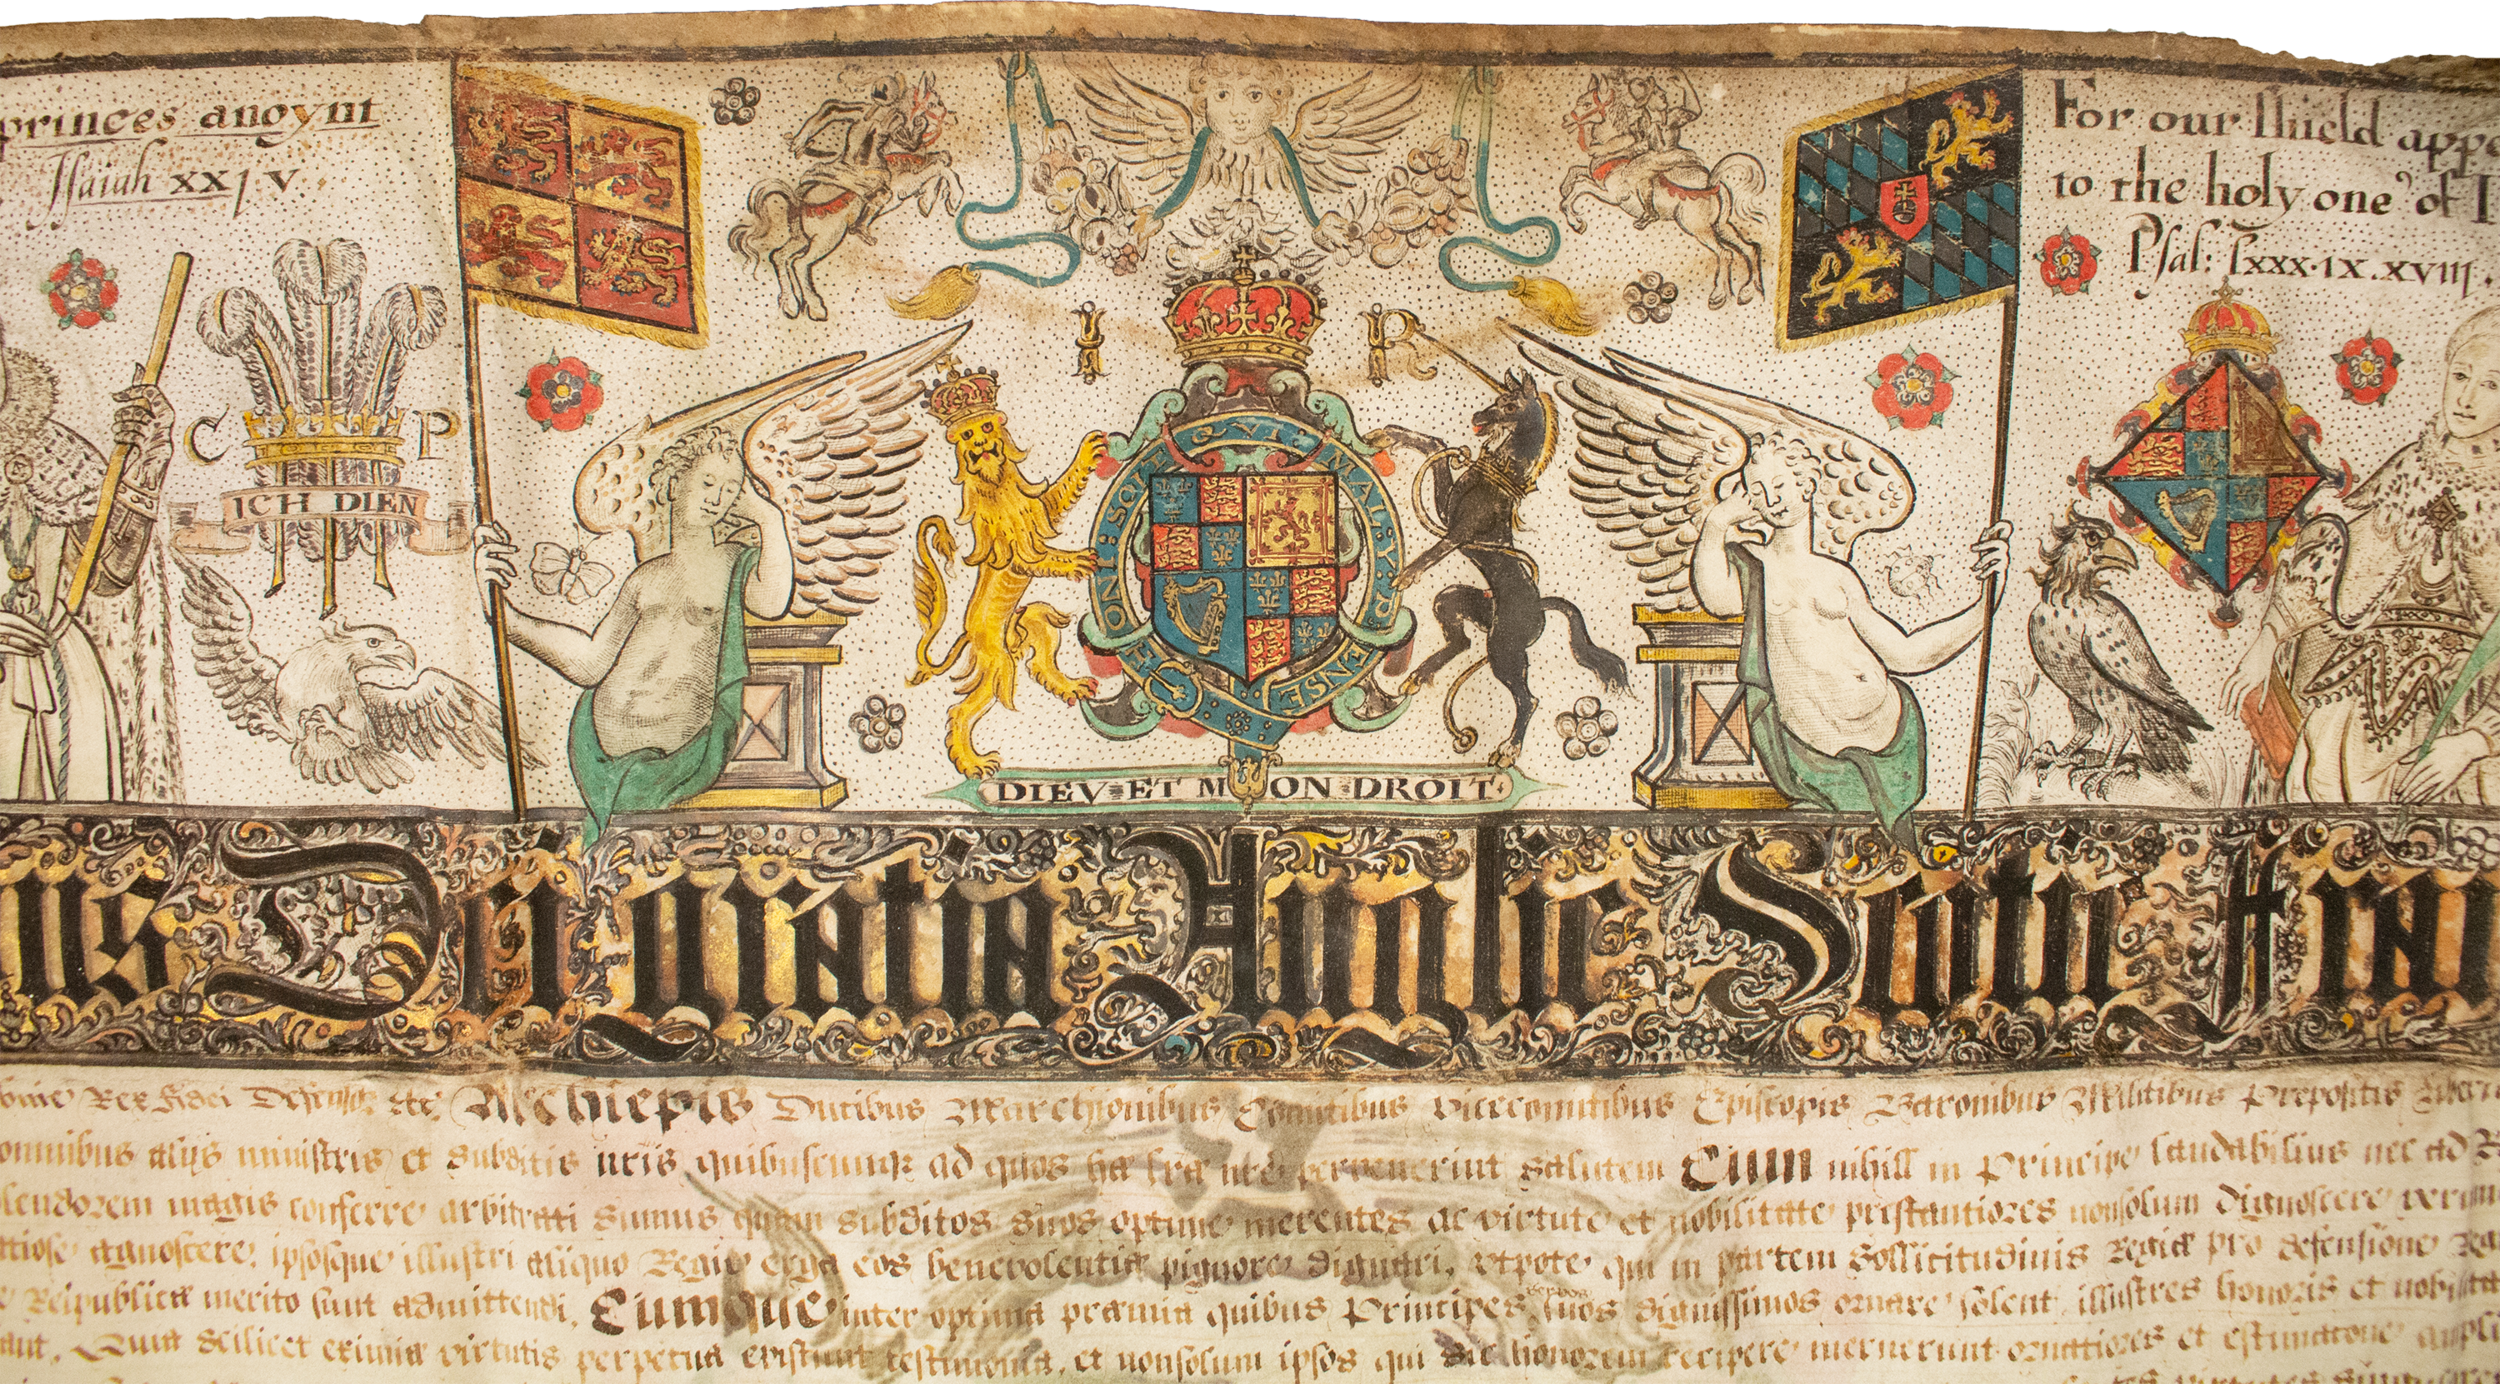 princes anoynt
Isaiah xxj v.
For our shield appe
to the holy one of I
Psal: lxxx.ix.xviij.
I R
C P
ICH DIEN
HONI: SOIT Q VI MAL Y: P ENSE
DIEV ET MON DROIT
us Dei gratia Anglie Scotie Fran
Rex fidei Defensor etc Archiepis Ducibus Marchionibus Comitibus Vicecomitibus Episcopis Baronibus Militibus Prepositis
omnibus alijs ministris et subditis nris quibuscumqz ad quos hae lrae nre pervenerint salutem Cum nihill in Principe laudabilius nec ad R
lendorem magis conferre arbitrati sumus quam subditos suos optime merentes ac virtute et nobilitate prestantiores nonsolum dignoscere verum
agnoscere, ipsosque illustri aliquo Regie erga eos benevolentiæ pignore dignari, utpote qui in partem sollicitudinis Regiæ pro defensione
Reipublicæ merito sunt admittendi. Cumque inter optima præmia quibus Principes suos dignissimos ornare solent, illustres honoris et
Quia scilicet eximiæ virtutis perpetua existunt testimonia, et nonsolum ipsos qui honorem recipere meruerunt ornatiores et